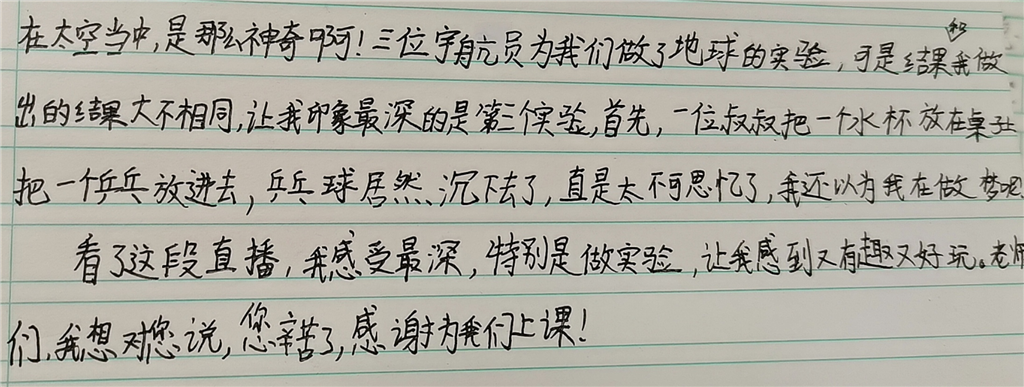 在太空当中,是那么神奇啊!三位宇航员为我们做了地球的实验,可是结果和我做
出的结果大不相同,让我印象最深的是第三个实验,首先,一位叔叔把一个水杯放在桌子上
把一个乒乓放进去,乒乓球居然沉下去了,直是太不可思忆了,我还以为我在做梦呢
看了这段直播,我感受最深,特别是做实验,让我感到又有趣又好玩。老师
们,我想对您说,您辛苦了,感谢为我们上课!